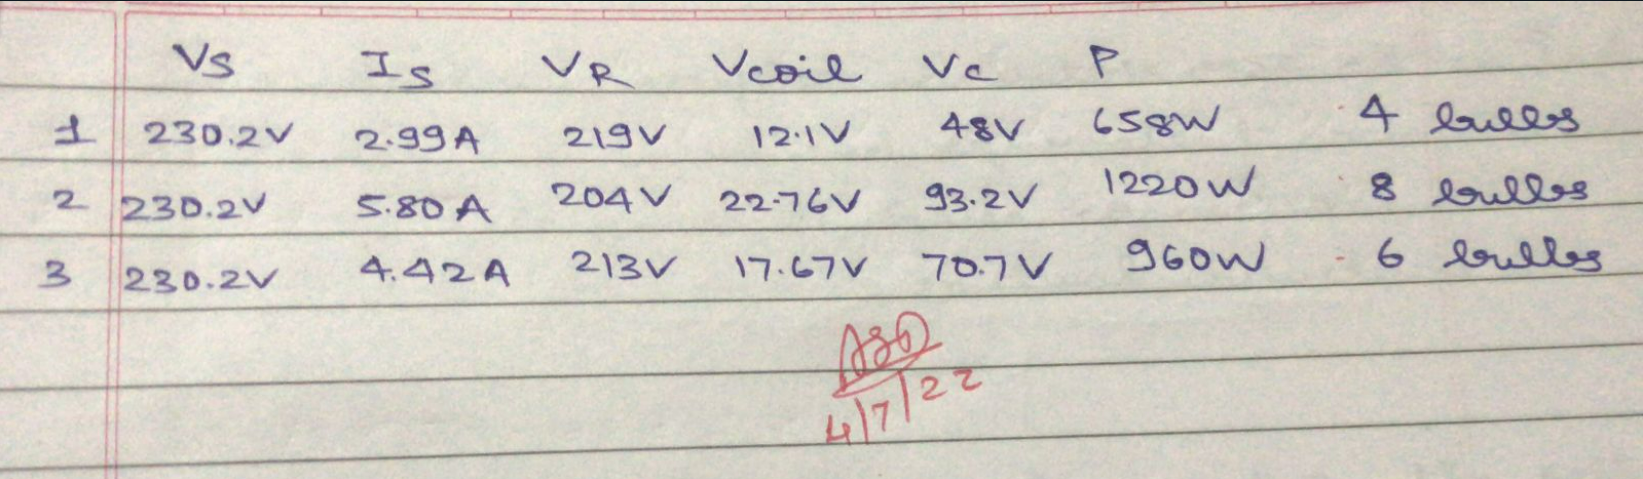 Vs Is VR Vcoil Vc P
1 230.2V 2.99A 219V 12.1V 48V 658W 4 bulbs
2 230.2V 5.80A 204V 22.76V 93.2V 1220W 8 bulbs
3 230.2V 4.42A 213V 17.67V 70.7V 960W 6 bulbs
4/7/22